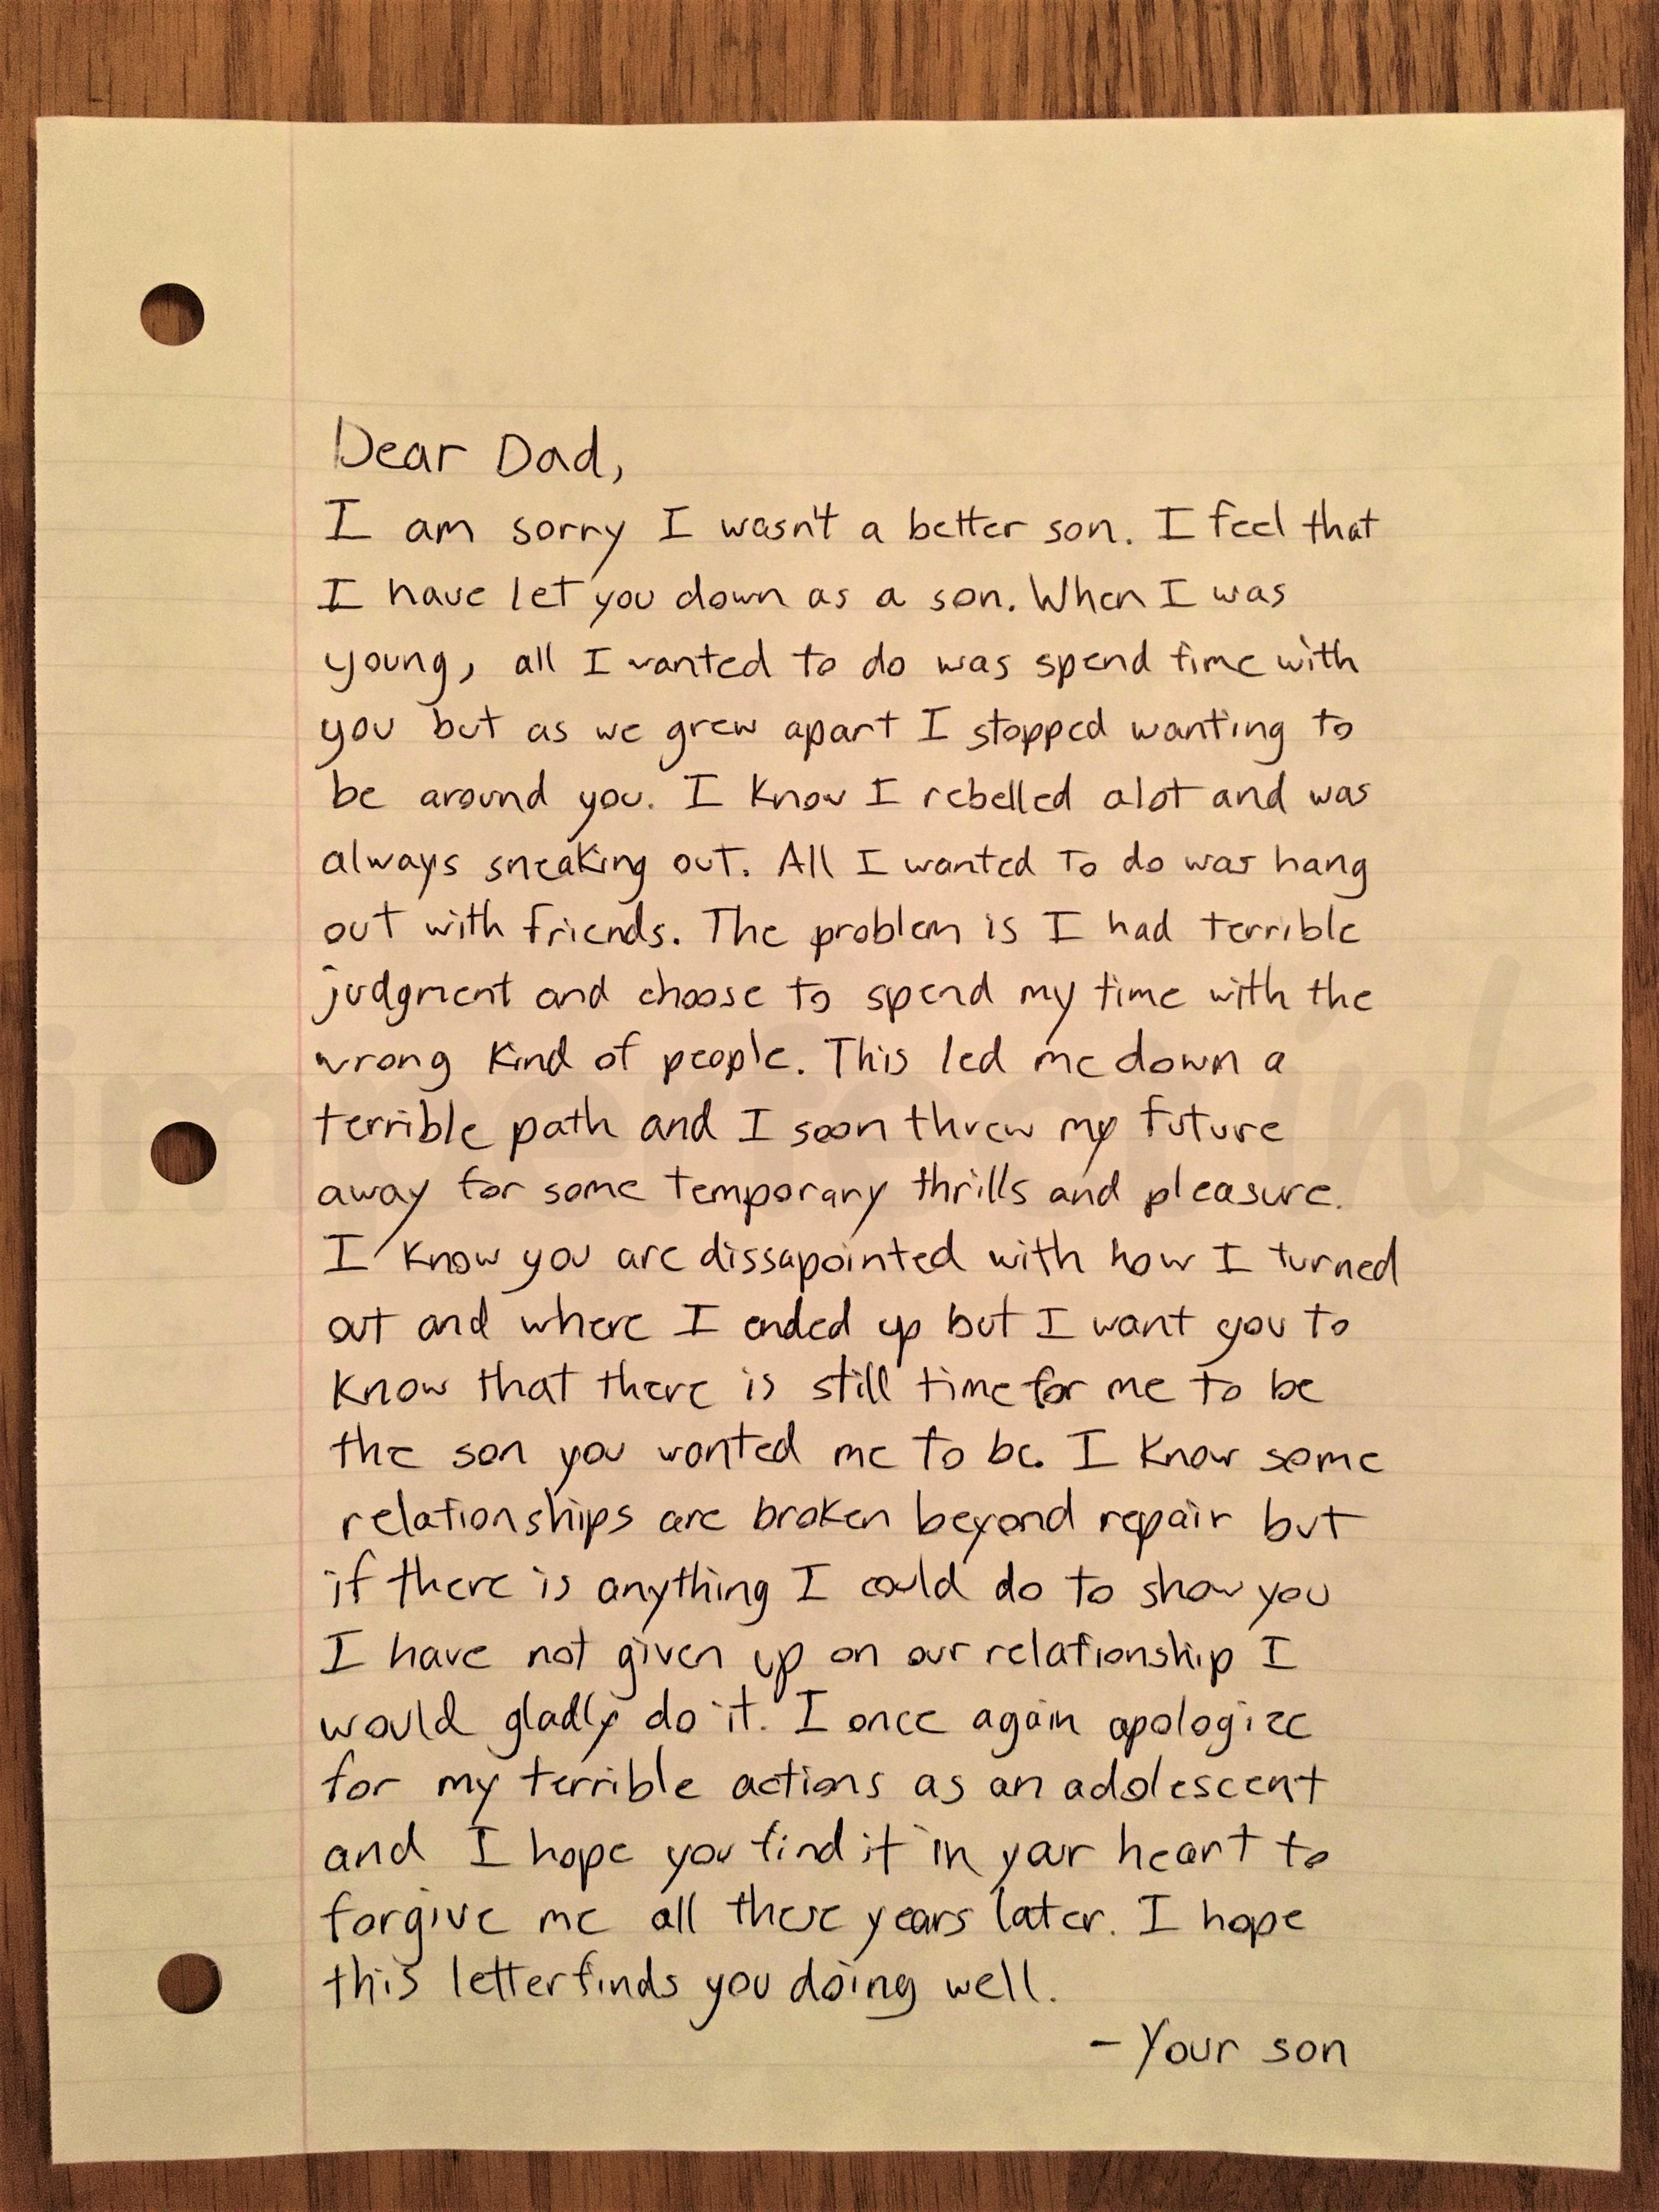 Dear Dad,
I am sorry I wasn't a better son. I feel that
I have let you down as a son. When I was
young, all I wanted to do was spend time with
you but as we grew apart I stopped wanting to
be around you. I know I rebelled alot and was
always sneaking out. All I wanted to do was hang
out with friends. The problem is I had terrible
judgment and choose to spend my time with the
wrong kind of people. This led me down a
terrible path and I soon threw my future
away for some temporary thrills and pleasure.
I know you are dissapointed with how I turned
out and where I ended up but I want you to
know that there is still time for me to be
the son you wanted me to be. I know some
relationships are broken beyond repair but
if there is anything I could do to show you
I have not given up on our relationship I
would gladly do it. I once again apologize
for my terrible actions as an adolescent
and I hope you find it in your heart to
forgive me all these years later. I hope
this letter finds you doing well.
- Your son